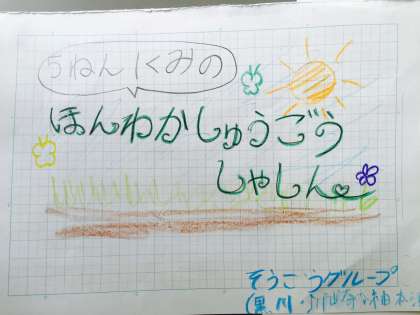 5ねん1くみの
ほんわかしゅうごう
しゃしん
そうごうグループ
(黒川・川崎・柚本